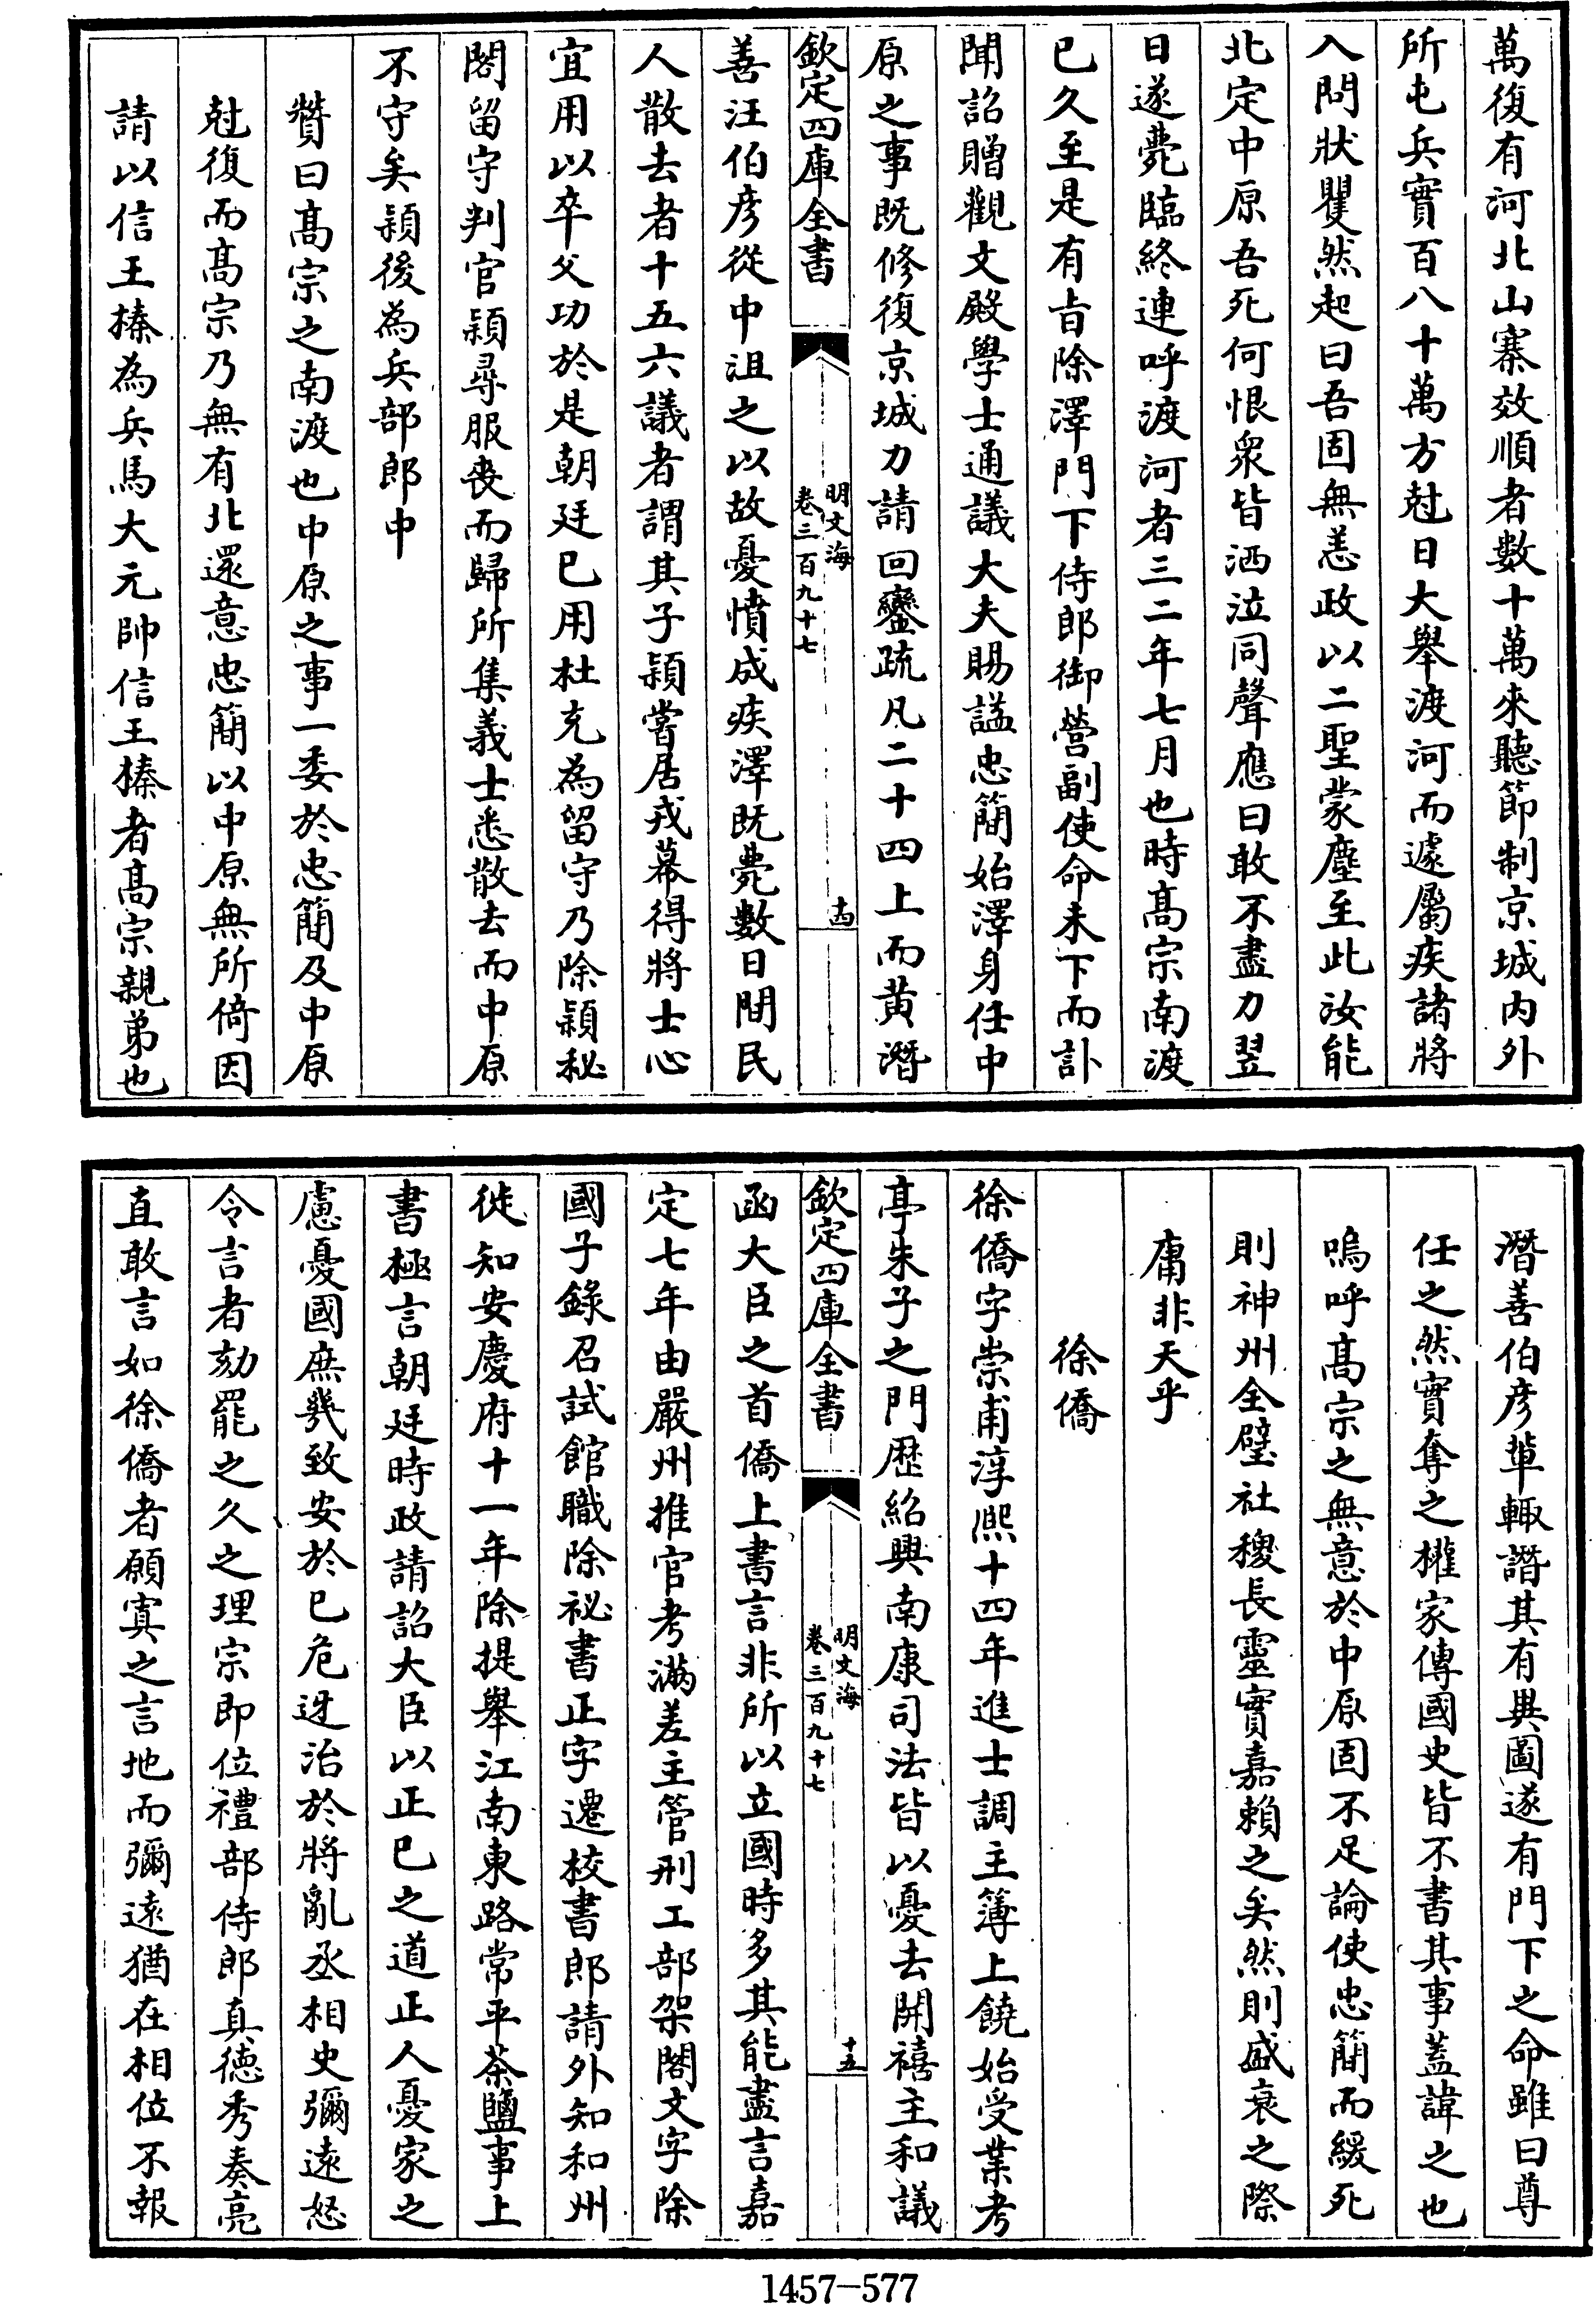 萬復有河北山寨效順者數十萬來聽節制京城内外
所屯兵實百八十萬方尅日大舉渡河而遽屬疾諸將
入問狀矍然起曰吾固無恙政以二聖蒙塵至此汝能
北定中原吾死何恨衆皆洒泣同聲應曰敢不盡力翌
日遂薨臨終連呼渡河者三二年七月也時髙宗南渡
已久至是有㫖除澤門下侍郎御營副使命未下而訃
聞詔贈觀文殿學士通議大夫賜諡忠簡始澤身任中
原之事既修復京城力請回鑾疏凡二十四上而黄潛
欽定四庫全書
明文海
卷三百九十七
十四
善汪伯彦從中沮之以故憂憤成疾澤既薨數日間民
人散去者十五六議者謂其子頴嘗居戎幕得將士心
宜用以卒父功於是朝廷已用杜充為留守乃除頴秘
閣留守判官頴尋服喪而歸所集義士悉散去而中原
不守矣頴後為兵部郎中
贊曰髙宗之南渡也中原之事一委於忠簡及中原
尅復而髙宗乃無有北還意忠簡以中原無所倚因
請以信王榛為兵馬大元帥信王榛者髙宗親弟也
潛善伯彦輩輙譖其有異圖遂有門下之命雖曰尊
任之然實奪之權家傳國史皆不書其事蓋諱之也
嗚呼髙宗之無意於中原固不足論使忠簡而緩死
則神州全璧社稷長靈實嘉賴之矣然則盛衰之際
庸非天乎
徐僑
徐僑字崇甫淳熙十四年進士調主簿上饒始受業考
亭朱子之門歴紹興南康司法皆以憂去開禧主和議
欽定四庫全書
明文海
卷三百九十七
十五
函大臣之首僑上書言非所以立國時多其能盡言嘉
定七年由嚴州推官考滿差主管刑工部架閣文字除
國子錄召試館職除祕書正字遷校書郎請外知和州
徙知安慶府十一年除提舉江南東路常平茶鹽事上
書極言朝廷時政請詔大臣以正已之道正人憂家之
慮憂國庶㡬致安於已危迓治於將亂丞相史彌遠怒
令言者劾罷之久之理宗即位禮部侍郎真徳秀奏亮
直敢言如徐僑者願寘之言地而彌遠猶在相位不報
1457—577